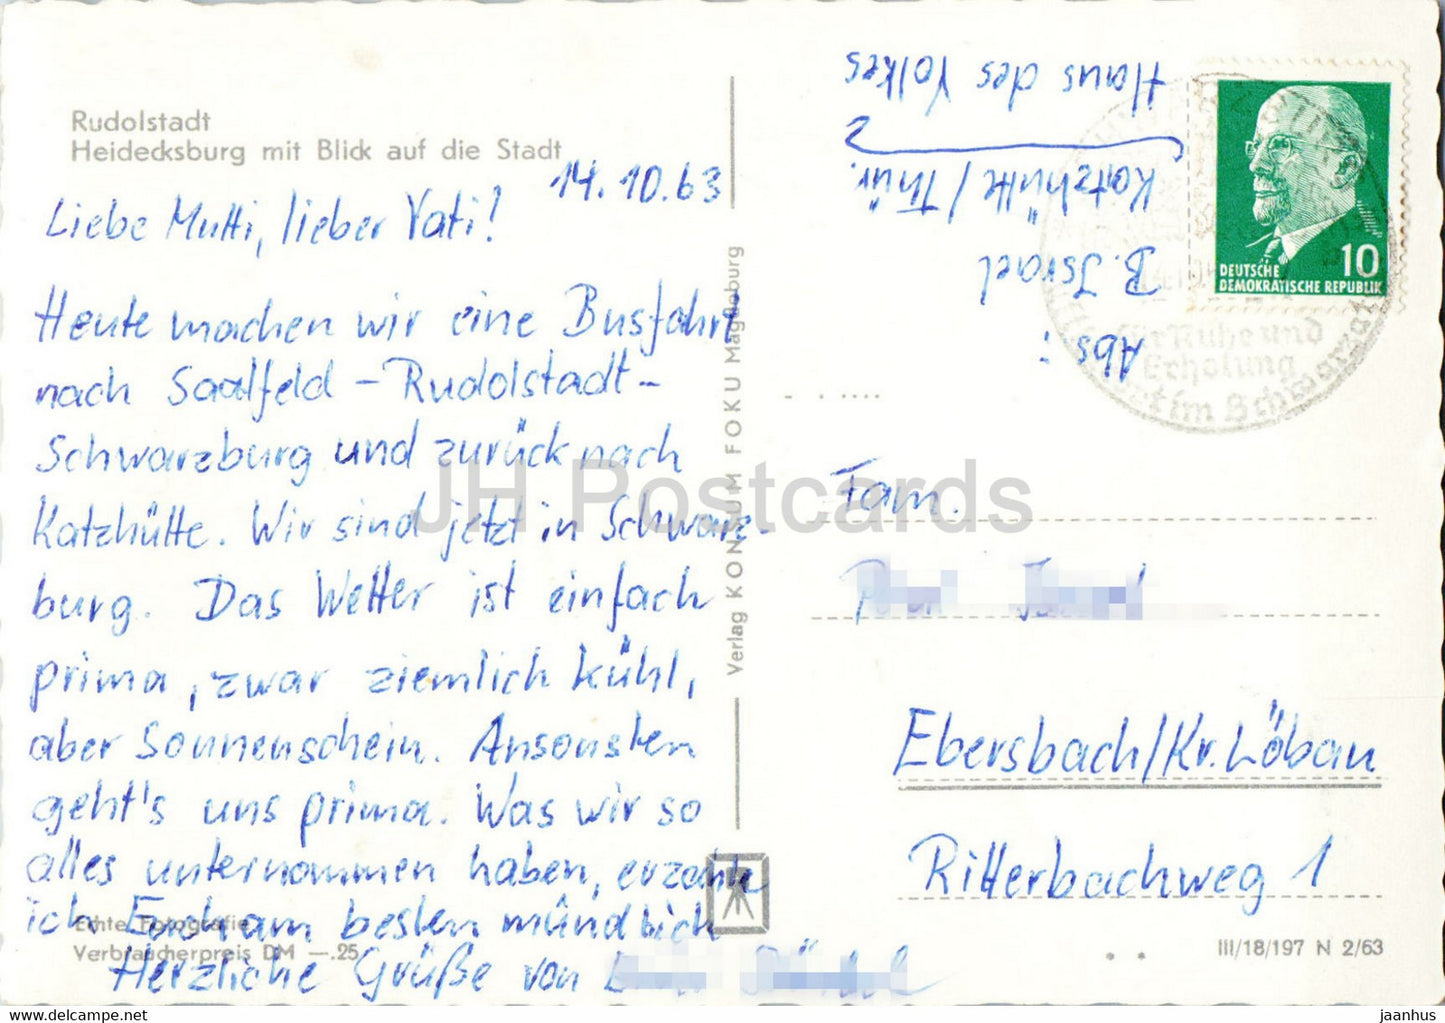 Rudolstadt
Heidecksburg mit Blick auf die Stadt
14.10.63
Liebe Mutti, lieber Vati!
Heute machen wir eine Busfahrt
nach Saalfeld – Rudolstadt –
Schwarzburg und zurück nach
Katzhütte. Wir sind jetzt in Schwarz-
burg. Das Wetter ist einfach
prima, zwar ziemlich kühl,
aber Sonnenschein. Ansonsten
geht's uns prima. Was wir so
alles unternommen haben, erzähle
ich Euch am besten mündlich
Herzliche Grüße von
Echte Fotografie
Verbraucherpreis DM —.25
Verlag KONSUM FOKU Magdeburg
Abs:
B. Israel
Katzhütte/Thür.
Haus des Volkes
10
DEUTSCHE
DEMOKRATISCHE REPUBLIK
für Ruhe und
Erholung
im Schwarzatal
Fam.
Ebersbach/Kr. Löbau
Ritterbachweg 1
III/18/197 N 2/63
JH Postcards
https://www.hippostcard.com/store/jaanhus
jaanhus